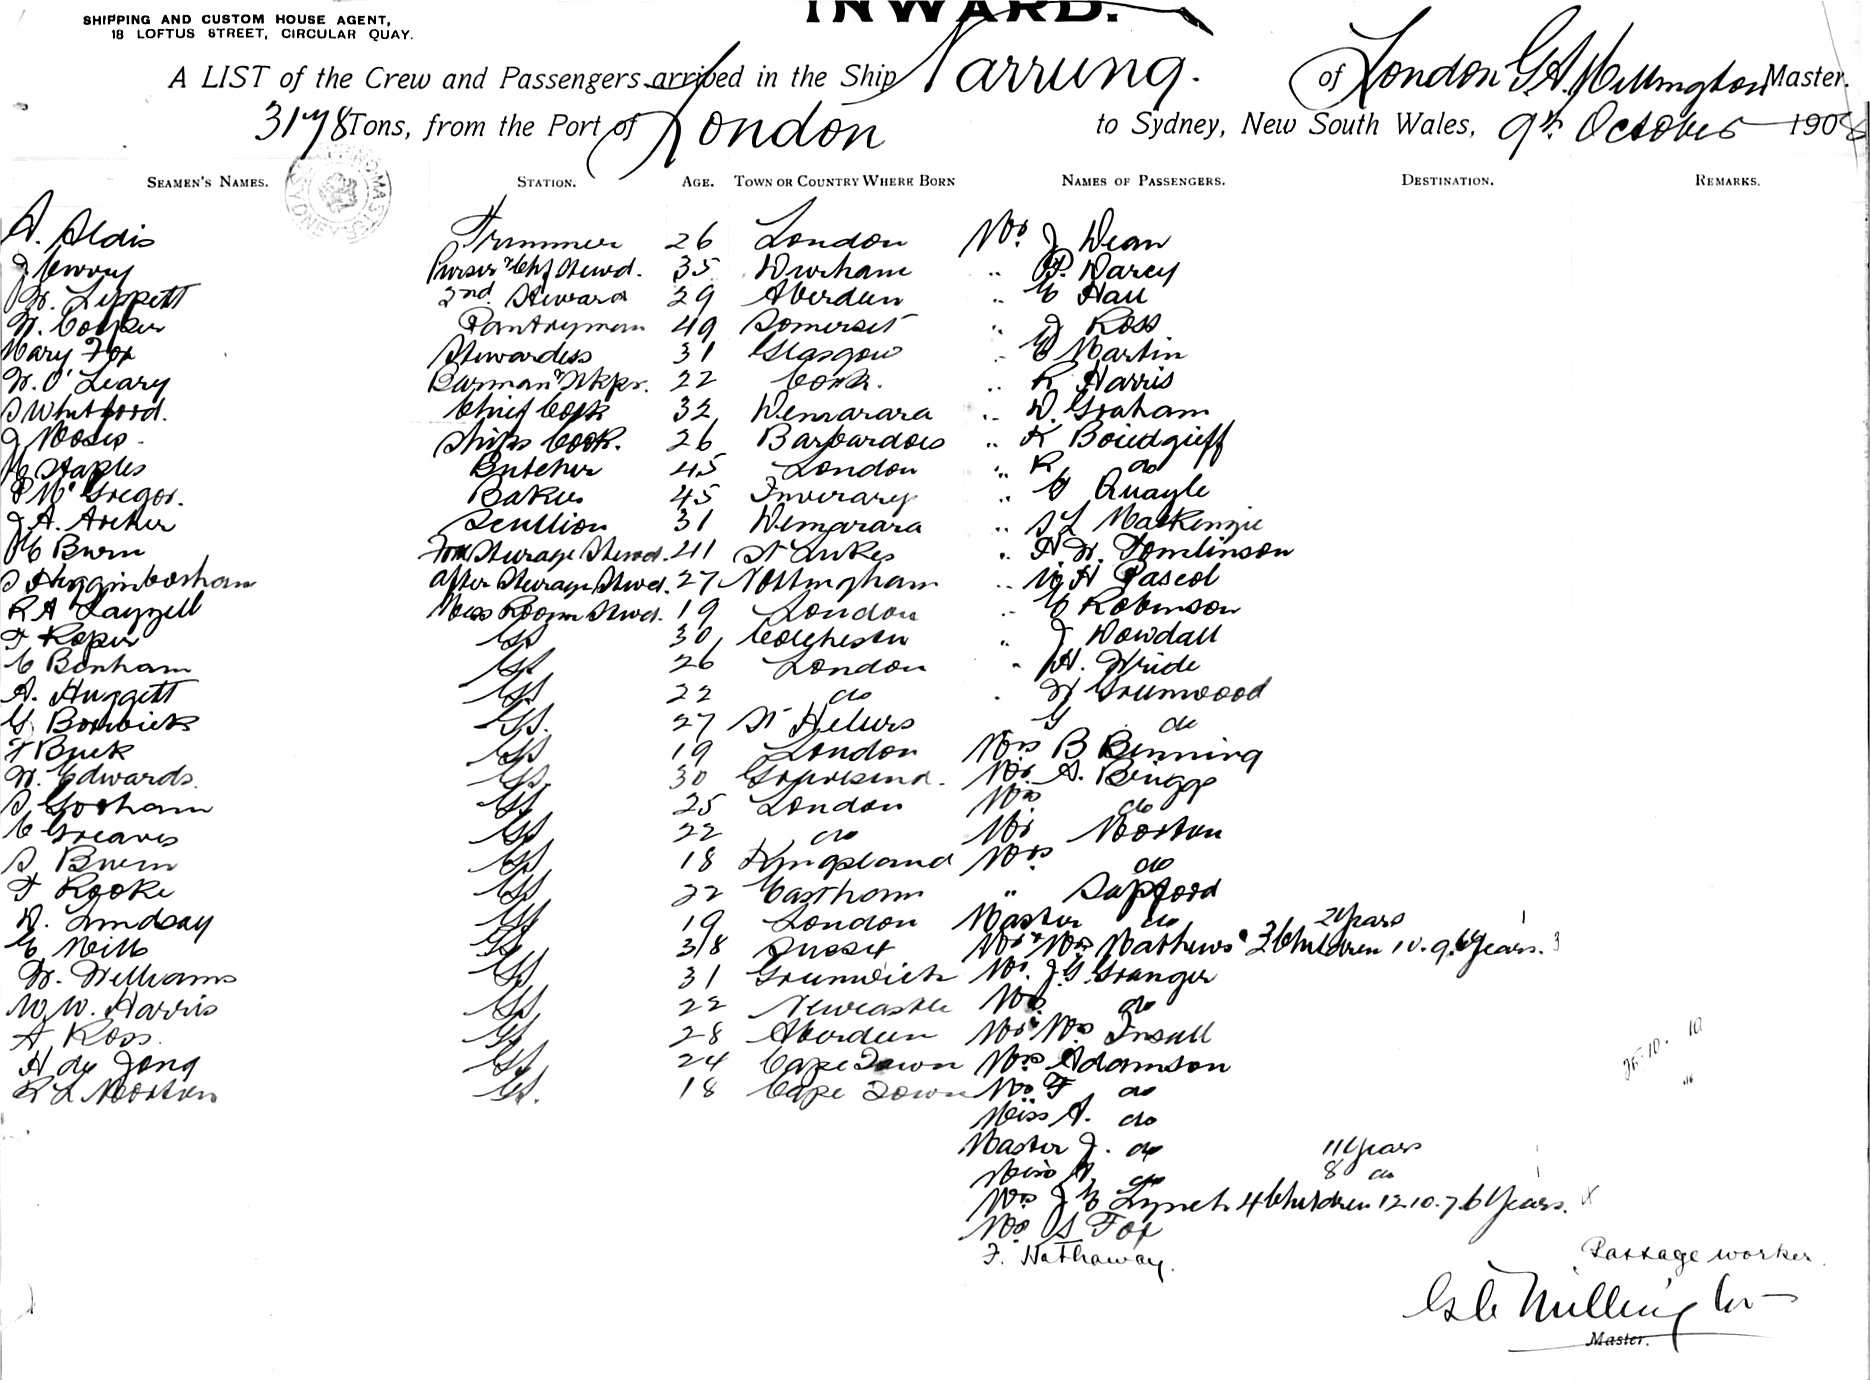 INWARD.
SHIPPING AND CUSTOM HOUSE AGENT,
18 LOFTUS STREET, CIRCULAR QUAY.
A LIST of the Crew and Passengers arrived in the Ship Narrung. of London G.A. Millington Master.
3178 Tons, from the Port of London to Sydney, New South Wales, 9th October 1908
SEAMEN'S NAMES. STATION. AGE. TOWN OR COUNTRY WHERE BORN NAMES OF PASSENGERS. DESTINATION. REMARKS.
A. Aldis Trimmer 26 London Mr. J Dean
J Purser & Chf Stewd. 35 Durham .. P. Darcy
W. Lippett 2nd. Steward 29 Aberdeen .. C Hall
W. Cooper Pantryman 49 Somerset .. J Ross
Mary Fox Stewardess 31 Glasgow .. C Martin
W. O'Leary Barman & Stkpr. 22 Cork. .. R Harris
S Whitford. Chief Cook 32 Demarara .. D. Graham
J Moses. Ships Cook. 26 Barbardoes .. K
C Staples Butcher 45 London .. R do
P McGregor. Baker 45 Inverary .. G Quayle
J A. Archer Scullion 31 Demarara .. S L MacKenzie
C Burn Ford Steerage Stewd. 41 St Lukes .. H W. Tomlinson
S Higginbotham After Steerage Stewd. 27 Nottingham .. W H Pascol
R A Layzell Mess Room Stwd. 19 London .. C Robinson
F Roper GS 30 Colchester .. J Dowdall
C Benham GS 26 London .. H. Wride
A. Huggett GS 22 do . W Greenwood
G Borwick GS. 27 St Heliers G do
F Buck GS 19 London Mrs B Binning
W. Edwards. GS. 30 Gravesend. Mr. A. Briggs
S Gorham GS 25 London Mrs do
C Greaves GS 22 do Mr Morton
S Burn GS 18 Kingsland Mrs do
F Rooke GS 22 Eastham " Sapford
D. Lindsay GS 19 London Master do 2 Years 1
C Mills GS 38 Sussex Mr & Mrs Mathews 3 Children 10. 9. 6 Years. 3
W. Williams GS 31 Greenwich Mr. J. G. Granger
W W. Harris GS 22 Newcastle Mrs do
A Ross. GS 28 Aberdeen Mr & Mrs Insull
H de Jong GS 24 Cape Town Mrs Adamson
R L Morton GS. 18 Cape Town Mr. F do
Miss A. do
Master J. do 11 Years
Miss do 8 do
Mrs J C Lynch 4 Children 12. 10. 7. 6 Years.
Mr. S Fox
F. Hathaway. Passage worker
G A Millington
Master.